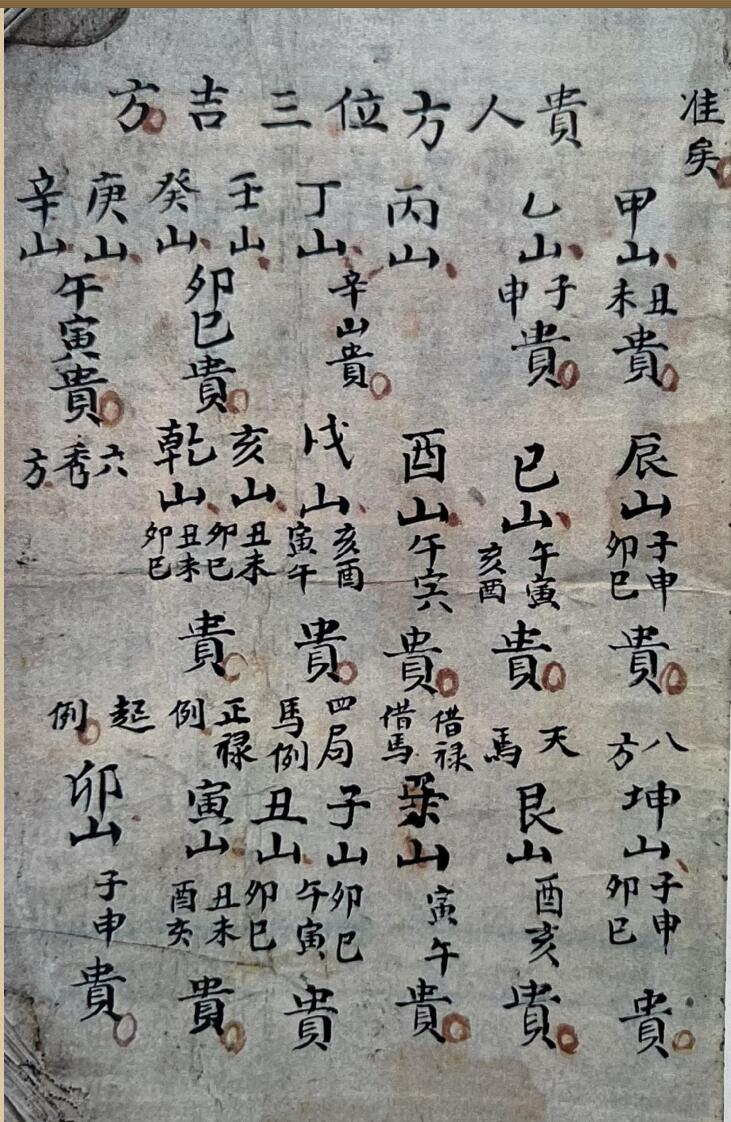 准矣
貴人方位三吉方
甲山 丑未 貴
乙山 子申 貴
丙山 丁山 辛山貴
壬山 癸山 卯巳貴
庚山 辛山 午寅貴
辰山 子申 卯巳 貴
巳山 午寅 亥酉 貴
酉山 午 貴
戌山 亥酉 寅午 貴
亥山 丑未 卯巳 乾山 丑未 卯巳 貴
六秀方
八方
天馬
借禄 借馬
四局馬例
正禄例
起例
坤山 子申 卯巳 貴
艮山 酉亥 貴
巽山 寅午 貴
子山 卯巳 午寅 丑山 卯巳 貴
寅山 丑未 酉亥 貴
卯山 子申 貴